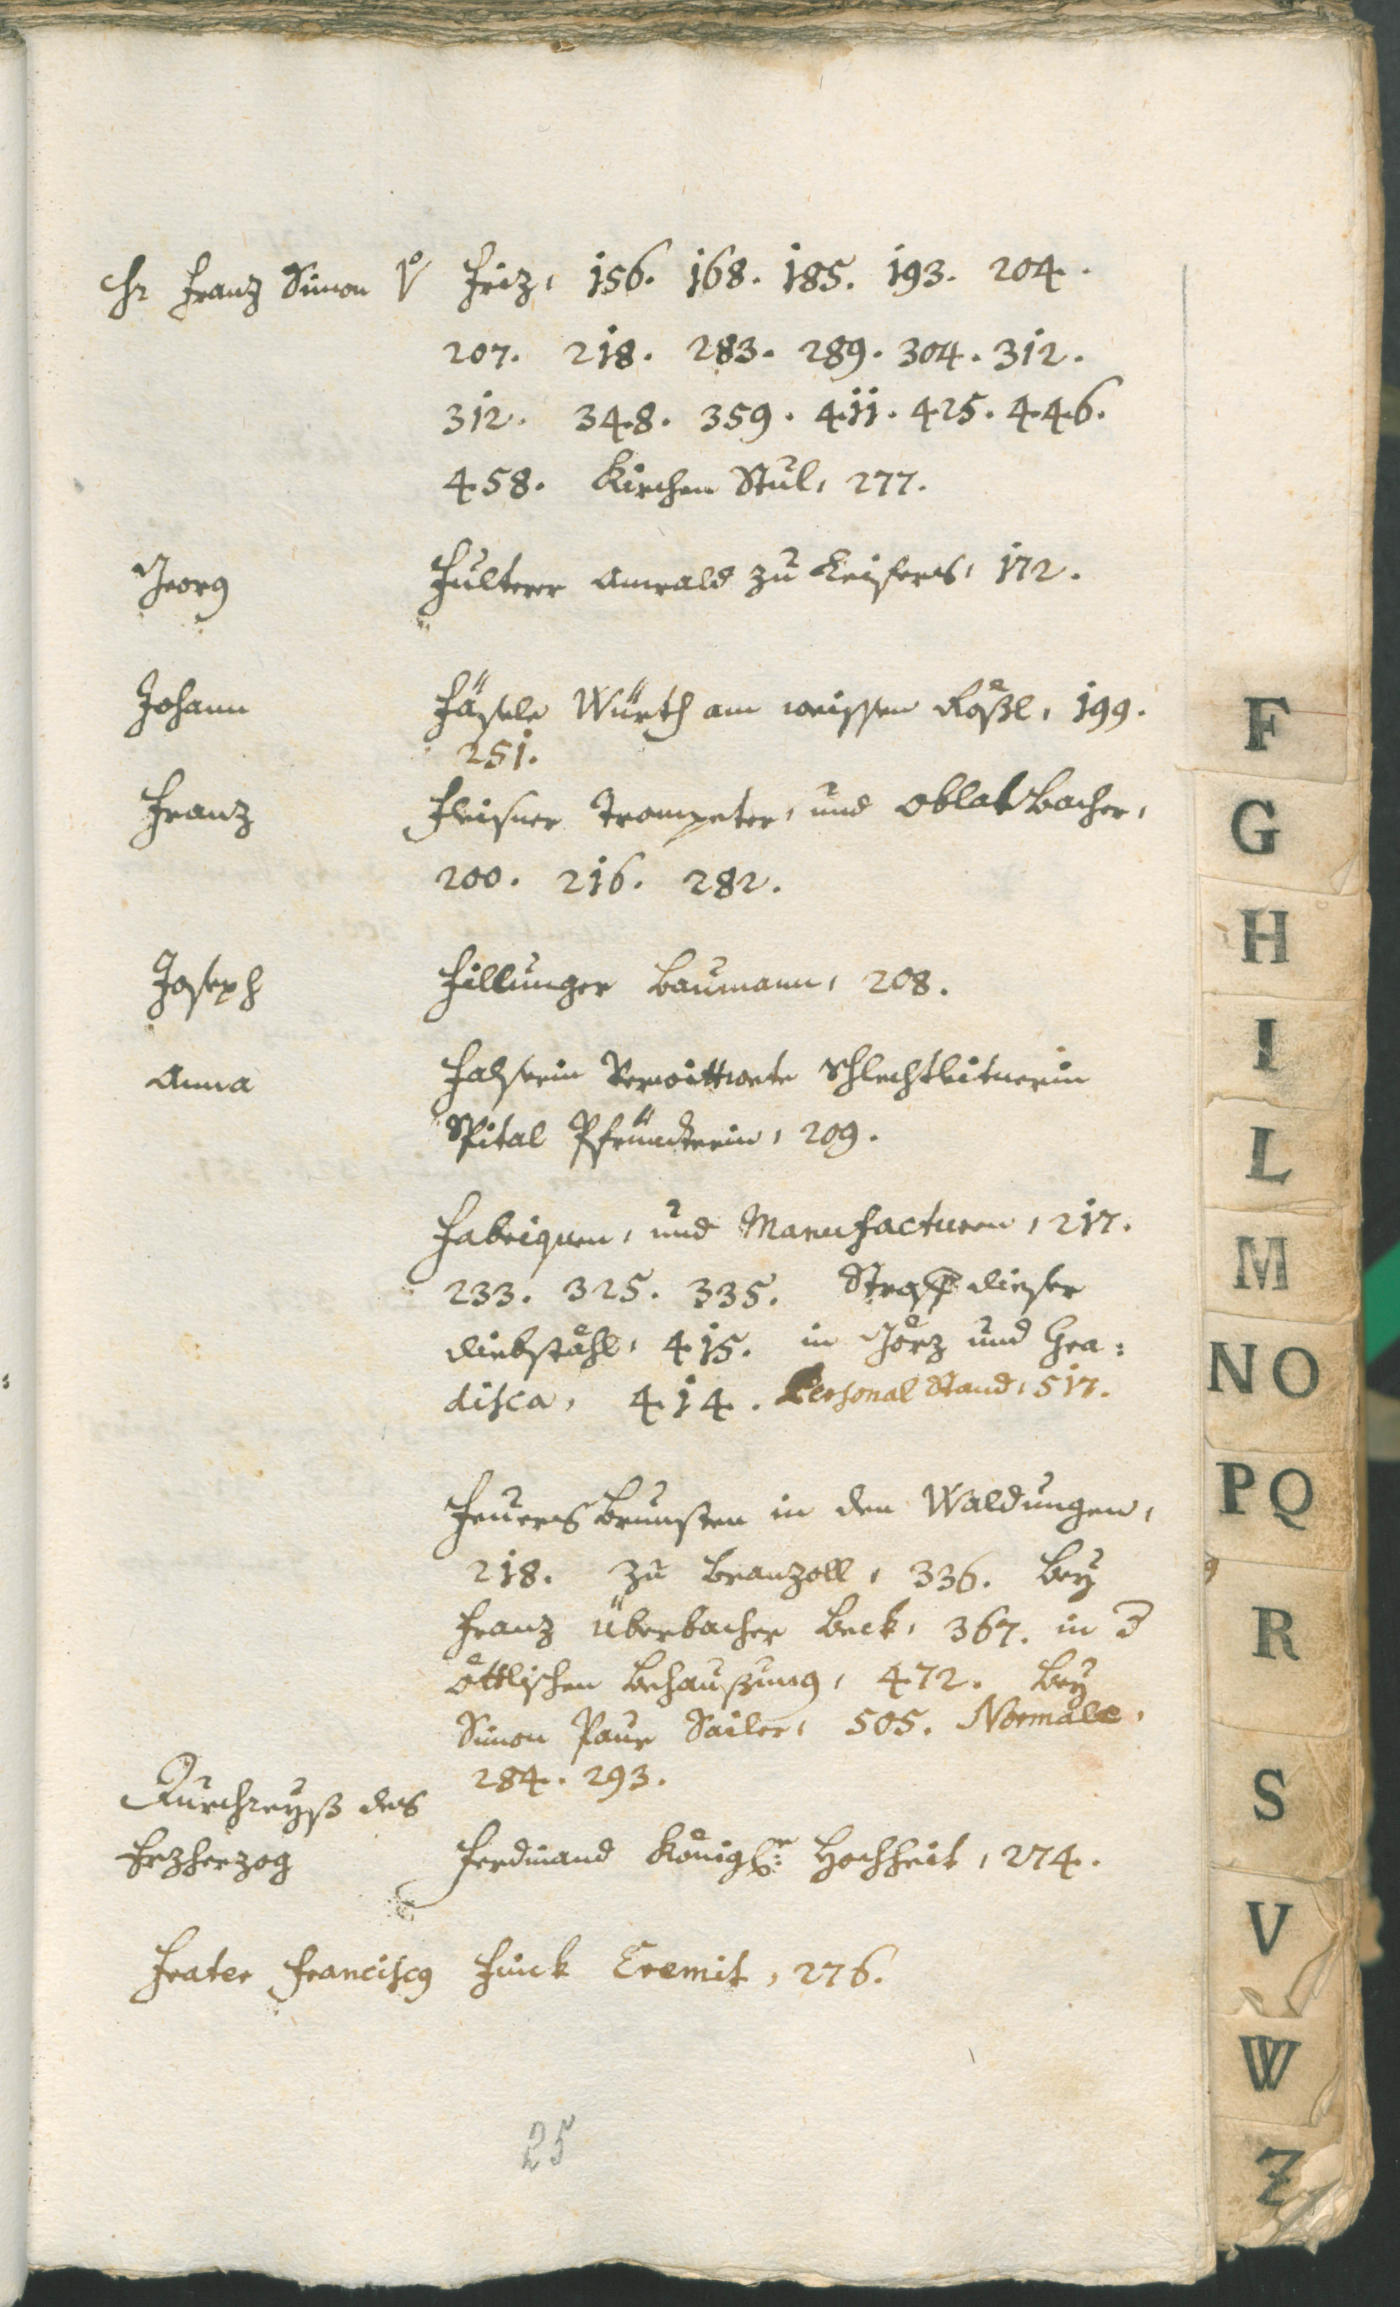 Hr Franz Simon v Friz, 156. 168. 185. 193. 204.
207. 218. 283. 289. 304. 312.
312. 348. 359. 411. 425. 446.
458. Kirchen Stul, 277.
Georg Fulterer Anwald zu Leifers, 172.
Johann Fäsele Würth am weissen Rößl, 199.
251.
Franz Fleisner Trompeter, und oblat bacher,
200. 216. 282.
Joseph Fillunger Baumann, 208.
Anna Falserin Verwittwete Schlechtleitnerin
Spital Pfründterin, 209.
Fabriquen, und Manufacturen, 217.
233. 325. 335. Straff dieser
diebstähl, 415. in Görz und Gra:
disca, 414. Personal Stand, 517.
Feuersbrunsten in den Waldungen,
218. zu Branzoll, 336. bey
Franz Überbacher Beck, 367. in d
öttlischen Behaußung, 472. bey
Simon Paur Sailer, 505. Normale,
284. 293.
Durchreyß des
Erzherzog Ferdinand Königl:r Hochheit, 274.
Frater Franciscus Finck Eremit, 276.
25
F
G
H
I
L
M
N O
P Q
R
S
V
W
Z